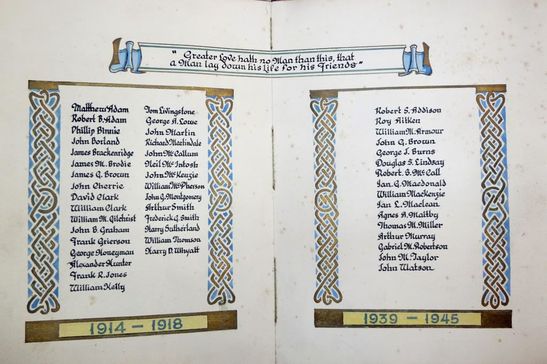 "Greater Love hath no Man than this, that
a Man lay down his Life for his Friends"
Matthew Adam
Robert B. Adam
Phillip Binnie
John Borland
James Brackenridge
James M. Brodie
James G. Brown
John Cherrie
David Clark
William Clark
William M. Gilchrist
John B. Graham
Frank Grierson
George Honeyman
Alexander Hunter
Frank R. Jones
William Kelly
Tom Livingstone
George A. Lowe
John Martin
Richard Martindale
John McCallum
Neil McIntosh
John McKenzie
William McPherson
John G. Montgomery
Arthur Smith
Frederick G. Smith
Harry Sutherland
William Thomson
Harry D. Whyatt
1914 - 1918
Robert S. Addison
Roy Aitken
William M. Armour
John G. Brown
George J. Burns
Douglas S. Lindsay
Robert G. McCall
Ian G. Macdonald
William MacKenzie
Ian L. Maclean
Agnes A. Maltby
Thomas M. Miller
Arthur Murray
Gabriel M. Robertson
John M. Taylor
John Watson
1939 - 1945